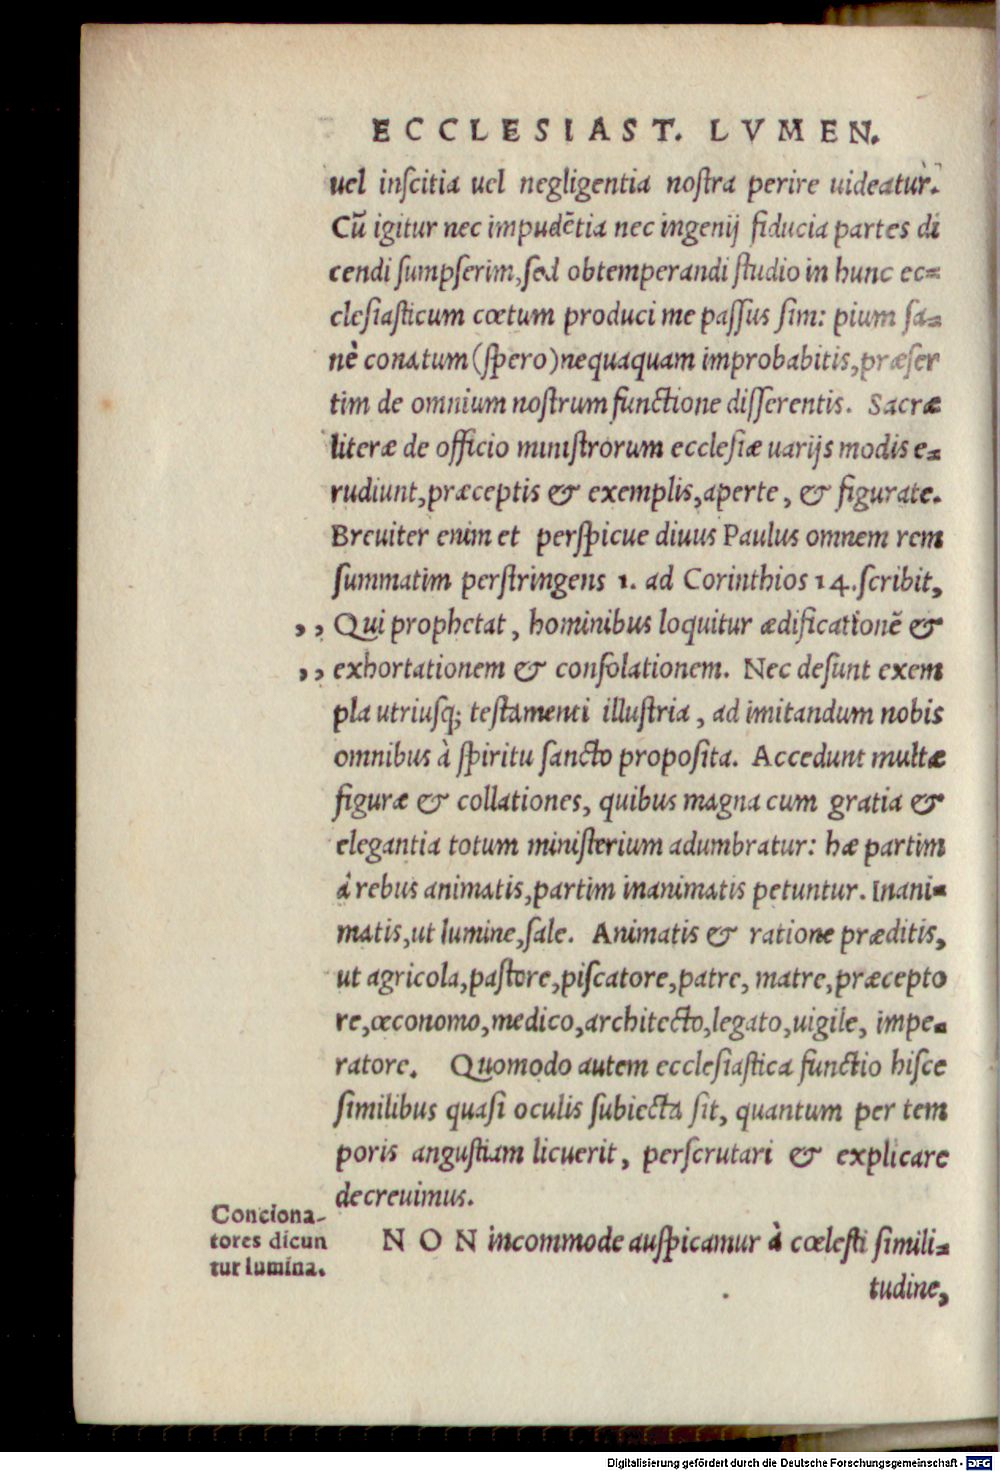 ECCLESIAST. LVMEN.
uel inscitia uel negligentia nostra perire uideatur.
Cū igitur nec impudētia nec ingenij fiducia partes di
cendi sumpserim, sed obtemperandi studio in hunc ec=
clesiasticum cœtum produci me passus sim: pium sa=
nè conatum (spero) nequaquam improbabitis, præser
tim de omnium nostrum functione disserentis. Sacræ
literæ de officio ministrorum ecclesiæ uarijs modis e=
rudiunt, præceptis & exemplis, aperte, & figurate.
Breuiter enim et perspicue diuus Paulus omnem rem
summatim perstringens 1. ad Corinthios 14. scribit,
,, Qui prophetat, hominibus loquitur ædificationē &
,, exhortationem & consolationem. Nec desunt exem
pla utriusq; testamenti illustria, ad imitandum nobis
omnibus à spiritu sancto proposita. Accedunt multæ
figuræ & collationes, quibus magna cum gratia &
elegantia totum ministerium adumbratur: hæ partim
à rebus animatis, partim inanimatis petuntur. Inani=
matis, ut lumine, sale. Animatis & ratione præditis,
ut agricola, pastore, piscatore, patre, matre, præcepto
re, œconomo, medico, architecto, legato, uigile, impe=
ratore. Quomodo autem ecclesiastica functio hisce
similibus quasi oculis subiecta sit, quantum per tem
poris angustiam licuerit, perscrutari & explicare
decreuimus.
Conciona-
tores dicun
tur lumina.
NON incommode auspicamur à cœlesti simili=
tudine,
Digitalisierung gefördert durch die Deutsche Forschungsgemeinschaft - DFG